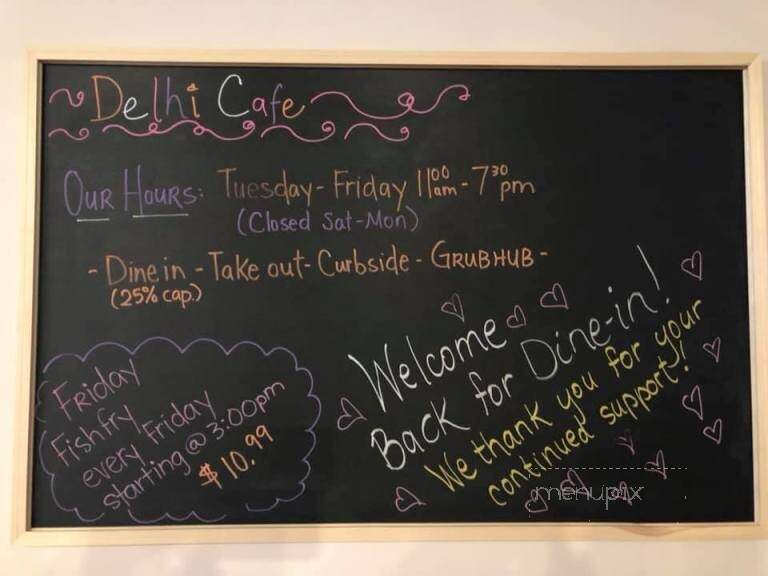 Delhi Cafe
OUR HOURS: Tuesday - Friday 11:00 am - 7:30 pm
(Closed Sat-Mon)
- Dine in - Take out - Curbside - GRUBHUB -
(25% cap.)
Welcome
Back for Dine-in!
We thank you for your
continued support!
Friday
Fishfry
every Friday
starting @ 3:00pm
$10.99
menupix